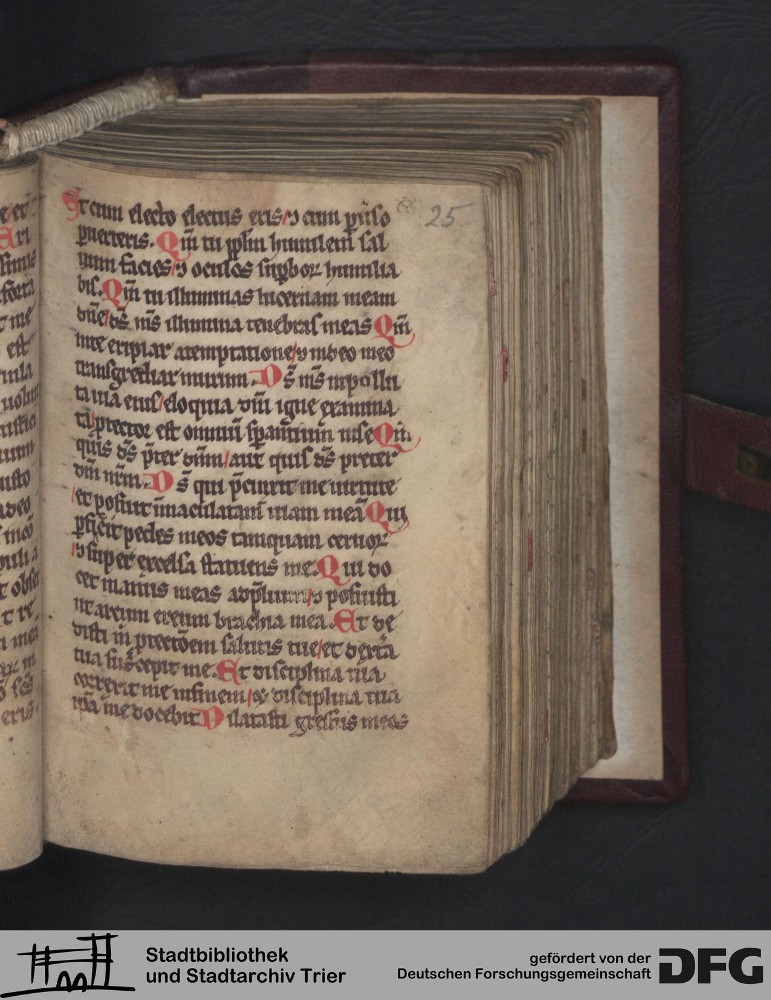 Et cum electo electus eris / ⁊ cum puso
puerteris. Qm̄ tu pplm humilem sal
uum facies / ⁊ oculos supboꝝ humilia
bis. Qm̄ tu illuminas lucernam meam
dn̄e / ds̄ ms̄ illumina tenebras meas Qm̄
inte eripiar atemptatione / ⁊ indeo meo
transgrediar murum. Ds̄ ms̄ inpollu
ta uia eius / eloquia dn̄i igne examina
ta / ptector est omniū sꝑantium inse Qm̄
quis ds̄ pter dn̄m / aut quis ds̄ preter
dm̄ nrm̄. Ds̄ qui pcinxit me uirtute
/ et posuit īmaculatam uiam meā Qui
ꝑficit pedes meos tamquam ceruoꝝ
/ ⁊ super excelsa statuens me. Qui do
cet manus meas adplium / ⁊ posuisti
ut arcum ereum brachia mea. Et de
disti m̄ ptectōem salutis tue / et dextā
tua suscepit me. Et disciplina tua
correxit me infinem / ⁊ disciplina tua
ipā me docebit Dilatasti gressus meos
25
Stadtbibliothek
und Stadtarchiv Trier
gefördert von der
Deutschen Forschungsgemeinschaft
DFG